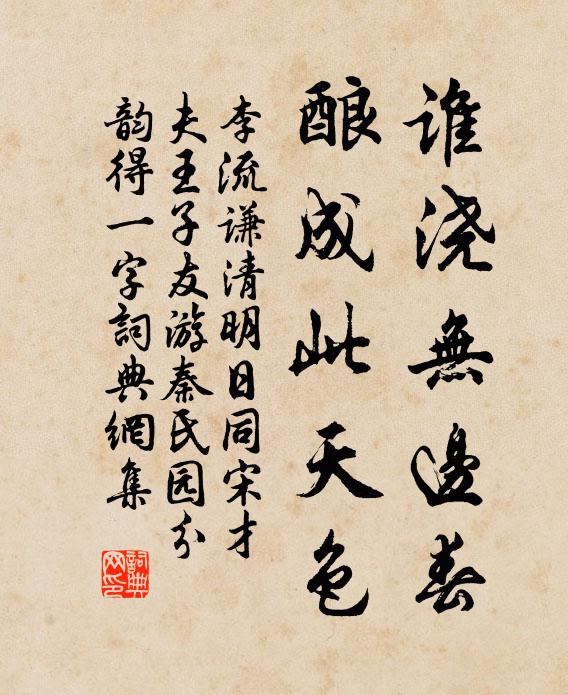 谁浇無邊春
酿成此天色
李流谦清明日同宋才
夫王子友游秦民园分
韵得一字詞典網集
詞典网印